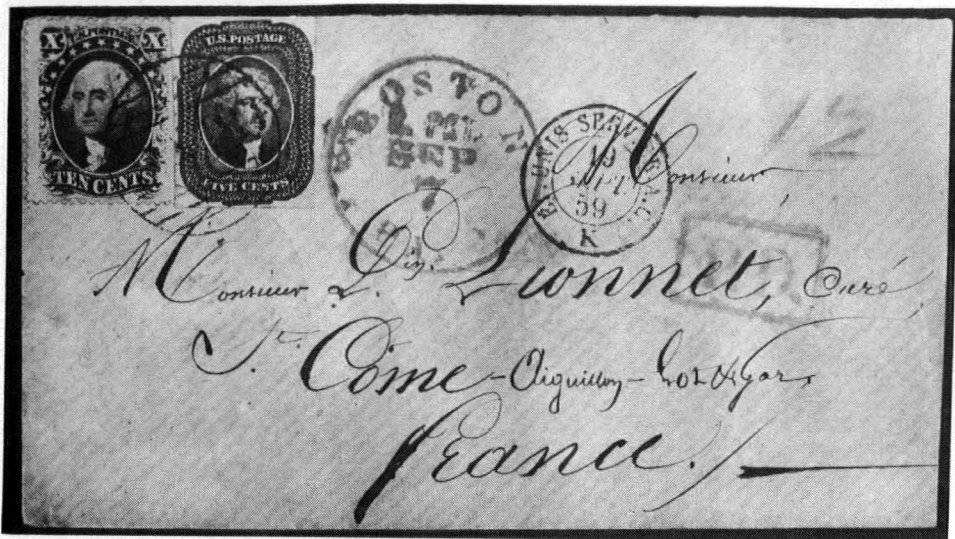 X U.S. POSTAGE X
TEN CENTS
U.S. POSTAGE
FIVE CENTS
BOSTON
SEP
E. UNIS SERV. A.C.
19
SEPT.
59
K
12
Monsieur
Monsieur Lionnet, Curé,
St. Côme - Aiguillon - Lot & Gar.
France.